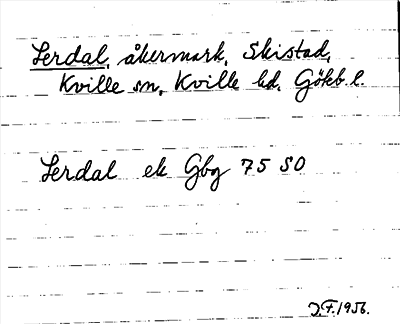 Lerdal, åkermark, Skistad,
Kville sn, Kville hd. Göteb. l.
Lerdal ek Gbg 75 SO
J.F. 1956.